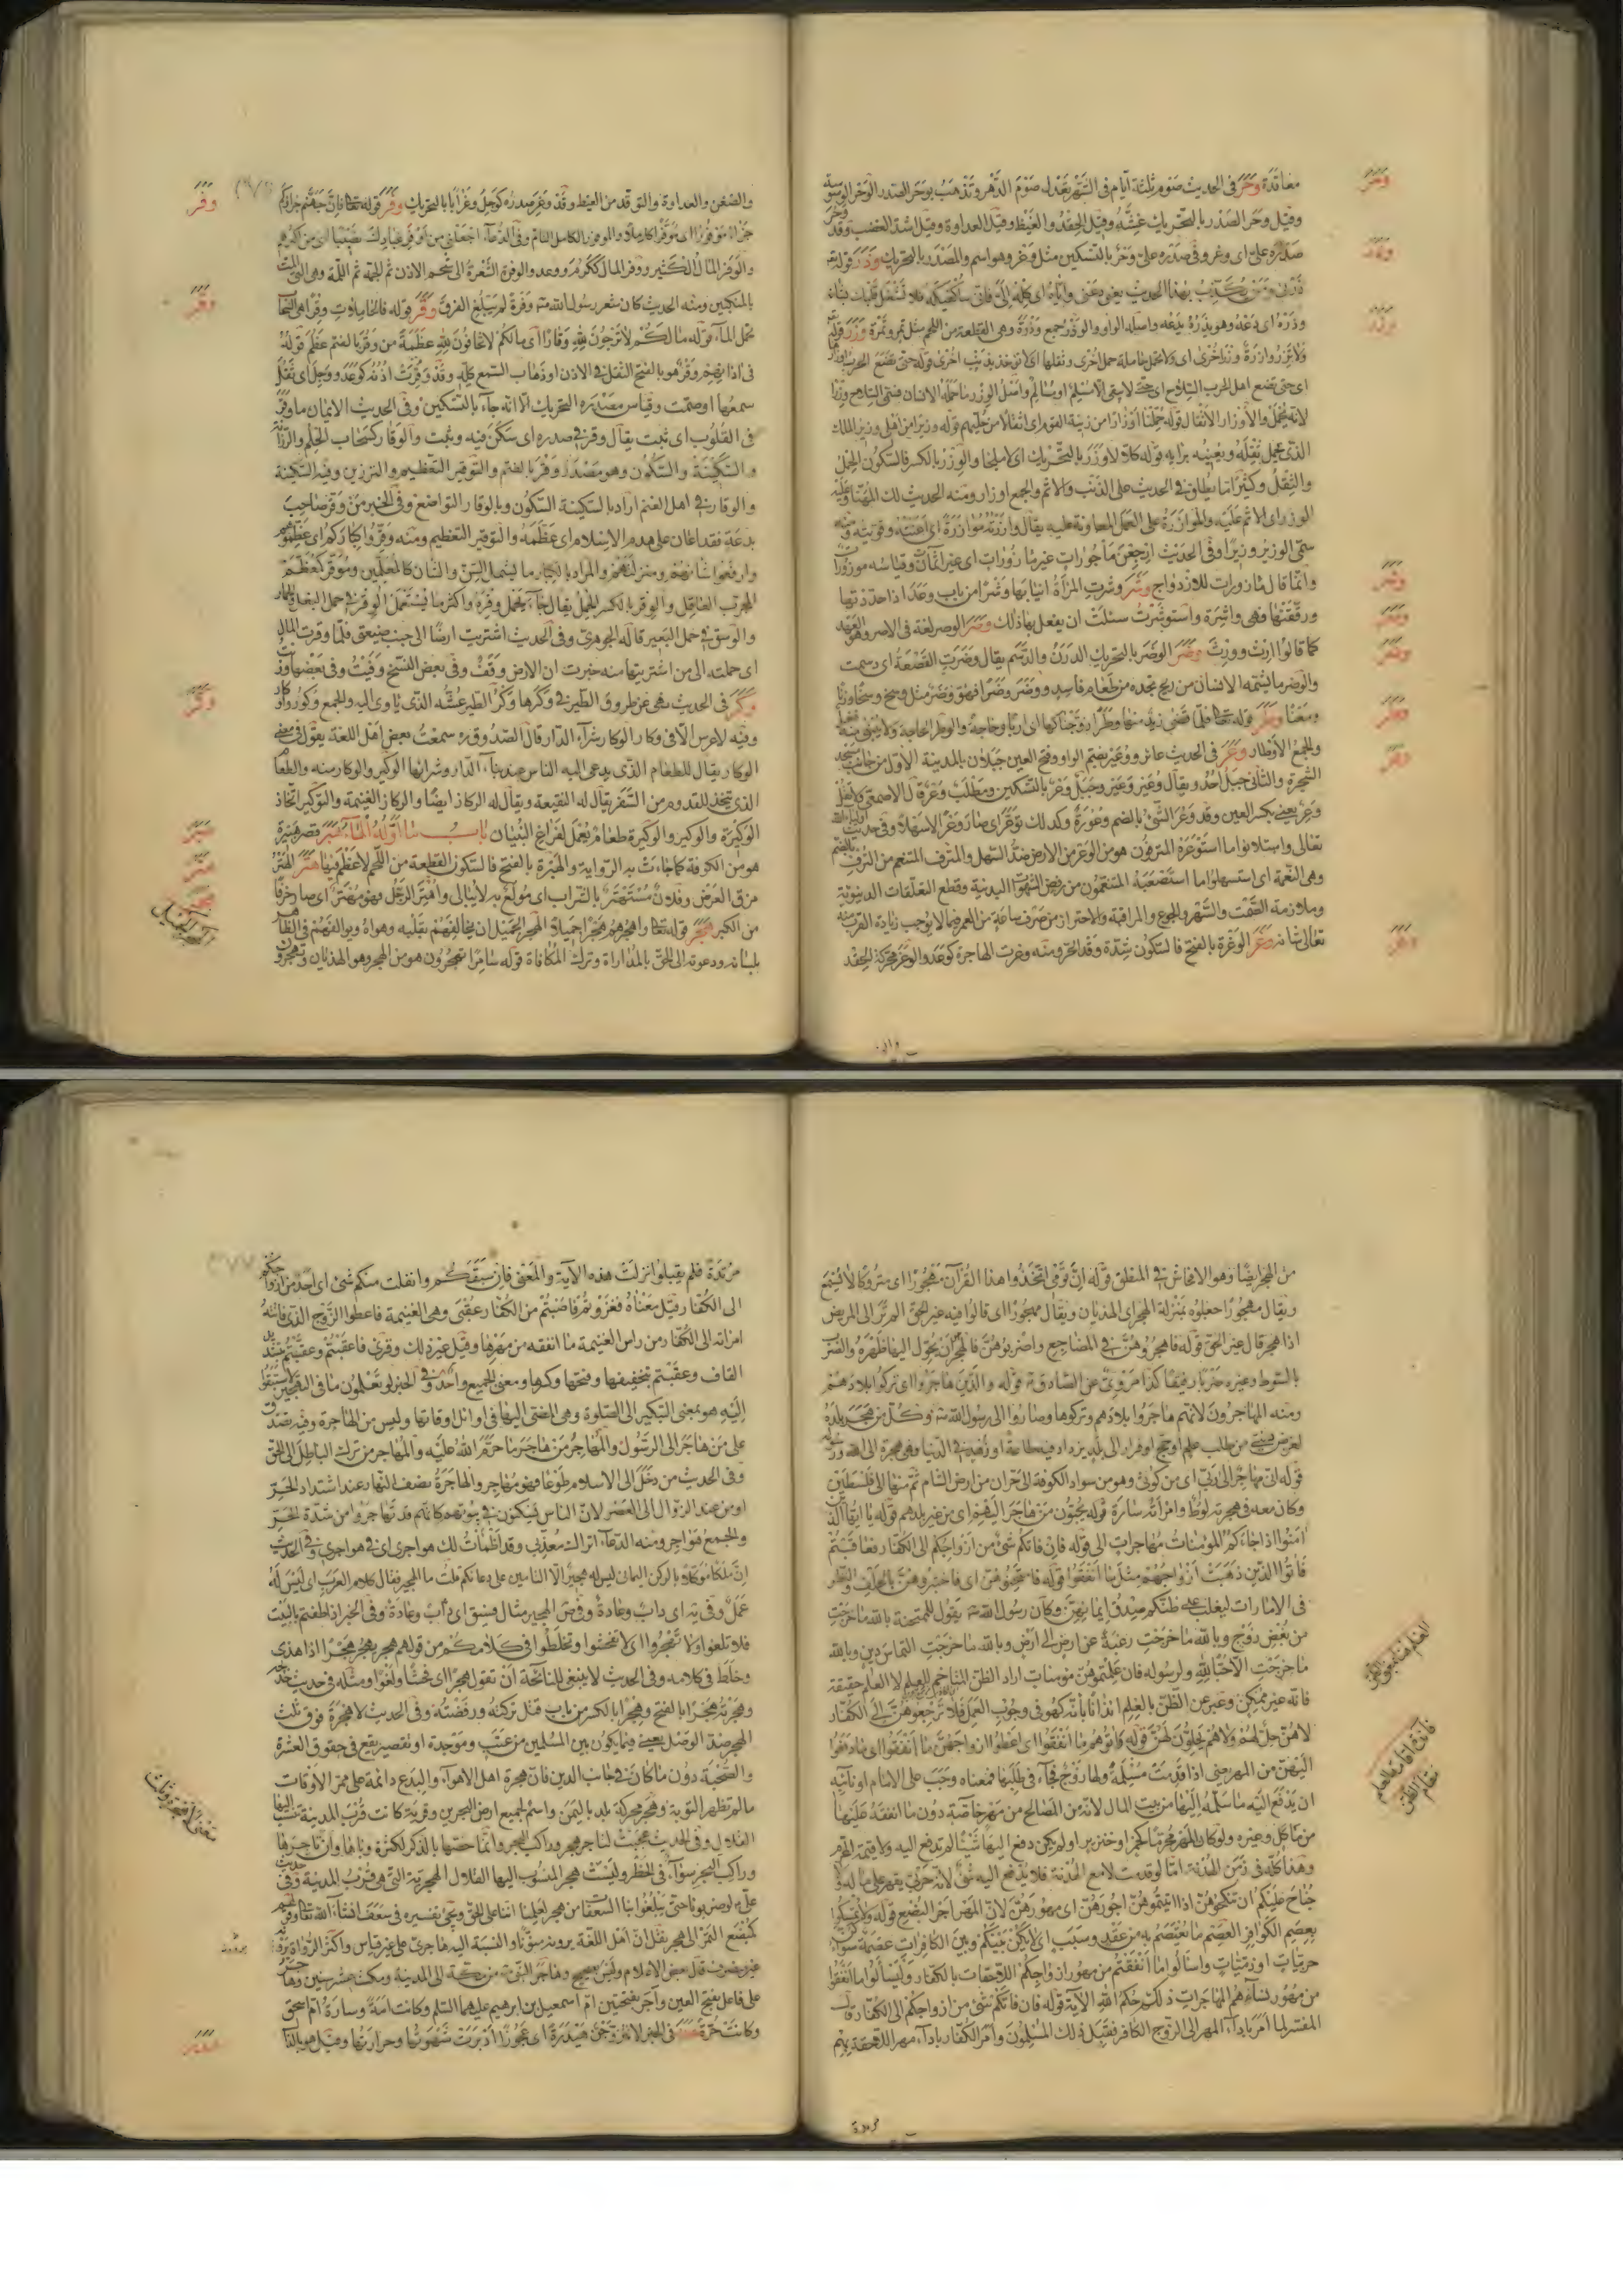 وحر
معاقدة وحر في الحديث صوم ثلثة ايام في الشهر يعدل صوم الدهر وتذهب بوحر الصدر الوحر الوسوسة
وقيل وحر الصدر بالتحريك غشه وقيل الحقد والغيظ وقيل العداوة وقيل اشد الغضب وقد وحر
صدره على اى وغر وفى صدره على وحر بالتسكين مثل وغر وهو اسم والمصدر بالتحريك وذر قوله تع
وذر
ذرنى ومن يكذب بهذا الحديث يعنى دعنى واياه اى كله الى فانى ساكفيكه فلا تشغل قلبك بشانه
وذره اى دعه وهو يذره يدعه واصله الواو والوذر جمع وذرة وهى القطعة من اللحم مثل تمر وتمرة وزر قوله
وزر
ولا تزر وازرة وزر اخرى اى ولا تحمل حاملة حمل اخرى وثقلها اى لا تؤخذ بذنب اخرى قوله حتى تضع الحرب اوزارها
اى حتى يضع اهل الحرب السلاح اى حتى لا يبقى الا مسلم او مسالم واصل الوزر ما حمله الانسان فسمى السلاح وزرا
لانه يحمل والاوزار الاثقال قوله حملنا اوزارا من زينة القوم اى اثقالا من حليهم قوله وزيرا من اهلى وزير الملك
الذى يحمل ثقله ويعينه برايه قوله كلا لا وزر بالتحريك اى لا ملجا والوزر بالكسر فالسكون الحمل
والثقل وكثيرا ما يطلق فى الحديث على الذنب والاثم والجمع اوزار ومنه الحديث لك المهنا وعليه
الوزر اى الاثم عليه والموازرة على العمل المعاونة عليه يقال وازرته موازرة اى اعنته وقويته ومنه
سمى الوزير وزيرا وفى الحديث ارجعن ماجورات غير مازورات اى غير اثمات وقياسه موزورات
وانما قال مازورات للازدواج وشر وشرت المراة انيابها وشرا من باب وعد اذا حددتها
وشر
ورققتها فهى واشرة واستوشرت سئلت ان يفعل بها ذلك وصر الوصر لغة فى الاصر وهو العهد
وصر
كما قالوا ارث وورث وضر الوضر بالتحريك الدرن والدسم يقال وضرت القصعة اى دسمت
وضر
والوضر ما يشمه الانسان من ريح تجده من طعام فاسد ووضر وضرا فهو وضر مثل وسخ وسخا وزنا
ومعنا وطر قوله تعالى فلما قضى زيد منها وطرا زوجناكها اى اربا وحاجة والوطر الحاجة ولا يبنى منه فعل
وطر
والجمع الاوطار وعر فى الحديث عائر ووعير بضم الواو وفتح العين جبلان بالمدينة الاول من جانب مسجد
وعر
الشجرة والثانى جبل احد ويقال وعير وعير وجبل وعر بالتسكين ومطلب وعر قال الاصمعى ولا تقل
وعر يعنى بكسر العين وقد وعر الشئ بالضم وعورة وكذلك توعر اى صار وعرا
تعالى واستلانوا ما استوعره المترفون هو من الوعر من الارض ضد السهل والمترف المتنعم من الترف بالضم
وهى النعمة اى استسهلوا ما استصعبه المتنعمون من رفض الشهوات البدنية وقطع التعلقات الدنيوية
وملازمة الصمت والسهر والجوع والمراقبة والاحتراز من صرف ساعة من العمر فيما لا يوجب زيادة القرب منه
تعالى شانه وغر الوغرة بالفتح فالسكون شدة توقد الحر ومنه وغرت الهاجرة كوعد والوغر محركة الحقد
وغر
والض
وفر
والضغن والعداوة والتوقد من الغيظ وقد وغر صدره كوجل وغرا بالتحريك وفر قوله تعالى فان جهنم جزاؤكم
جزاء موفورا اى موفرا كاملا والموفور الكامل التام وفى الدعاء اجعلنى من اوفر عبادك نصيبا اى من اكثرهم
والوفر المال الكثير ووفر المال ككرم ووعد والوفرة الشعرة الى شحمة الاذن ثم الجمة ثم اللمة وهى التى المت
بالمنكبين ومنه الحديث كان شعر رسول الله ص وفرة لم يبلغ الفرق وقر قوله فالحاملات وقرا هى السحاب
وقر
تحمل الماء قوله ما لكم لا ترجون لله وقارا اى مالكم لا تخافون لله عظمة من وقر بالضم عظم قوله
فى اذانهم وقر هو بالفتح الثقل فى الاذن او ذهاب السمع كله وقد وقرت اذنه كوعد ووجل اى ثقل
سمعها او صمت وقياس مصدره التحريك الا انه جاء بالتسكين وفى الحديث الايمان ما وقر
فى القلوب اى ثبت يقال وقر فى صدره اى سكن فيه وثبت والوقار كسحاب الحلم والرزانة
والسكينة والسكون وهو مصدر وقر بالضم والتوقير التعظيم والترزين وفيه السكينة
والوقار فى اهل الغنم اراد بالسكينة السكون وبالوقار التواضع وفى الخبر من وقر صاحب
بدعة فقد اعان على هدم الاسلام اى عظمه والتوقير التعظيم ومنه وقروا كباركم اى عظموهم
وارفعوا شانهم ومنزلتهم والمراد بالكبار ما يشمل السن والشان كالمعلمين وموقر كمعظم
المجرب العاقل والوقر بالكسر الحمل يقال جاء يحمل وقره واكثر ما يستعمل الوقر فى حمل البغل والحمار
والوسق فى حمل البعير قاله الجوهرى وفى الحديث اشتريت ارضا الى جنب ضيعتى فلما وقرت المال
اى حملته الى من اشتريتها منه خبرت ان الارض وقف وفى بعض النسخ وفيت وفى بعضها وزنت
وكر فى الحديث نهى عن طروق الطير فى وكرها وكر الطير عشه الذى ياوى اليه والجمع وكور واوكار
وكر
وفيه لا عرس الا فى وكار الوكار شراء الدار قال الصدوق ره سمعت بعض اهل اللغة يقول فى معنى
الوكار يقال للطعام الذى يدعى اليه الناس عند بناء الدار وشرائها الوكيرة والوكار منه والطعام
الذى يتخذ للقدوم من السفر يقال له النقيعة ويقال له الركاز ايضا والركاز الغنيمة والتوكير اتخاذ
الوكيرة والوكير والوكيرة طعام يعمل لفراغ البنيان باب ما اوله الهاء هبر قصر هبيرة
هبر
هو من الكوفة كما جاءت به الرواية والهبرة بالفتح فالسكون القطعة من اللحم لا عظم فيها هتر الهتر
هتر
مزق العرض وفلان مستهتر بالشراب اى مولع به لا يبالى واهتر الرجل فهو مهتر اى صار خرفا
من الكبر هجر قوله تعالى واهجرهم هجرا جميلا الهجر الجميل ان يخالفهم بقلبه وهواه ويوالفهم فى الظاهر
هجر
بلسانه ودعوته الى الحق بالمداراة وترك المكافاة قوله سامرا تهجرون هو من الهجر وهو الهذيان وتهجرون
من الهجر ايضا وهو الافحاش فى المنطق قوله ان قومى اتخذوا هذا القران مهجورا اى متروكا لا يستمع
ويقال مهجورا جعلوه بمنزلة الهجر اى الهذيان ويقال مهجورا اى قالوا فيه غير الحق الم تر الى المريض
اذا هجر قال غير الحق قوله فاهجروهن فى المضاجع واضربوهن فالهجر ان يحول اليها ظهره والضرب
بالسوط وغيره ضربا رفيقا كذا مروى عن الصادق ع قوله والذين هاجروا اى تركوا بلادهم
ومنه المهاجرون لانهم هاجروا بلادهم وتركوها وصاروا الى رسول الله ص وكل من هجر بلده
لغرض دينى من طلب علم او حج او فرار الى بلد يزداد فيه طاعة او زهد فى الدنيا فهى هجرة الى الله ورسوله
قوله انى مهاجر الى ربى اى من كوثى وهو من سواد الكوفة الى حران من ارض الشام ثم منها الى فلسطين
وكان معه فى هجرته لوط وامراته سارة قوله يحبون من هاجر اليهم اى من غير بلدهم قوله يا ايها الذين
امنوا اذا جاءكم المؤمنات مهاجرات الى قوله فان فاتكم شئ من ازواجكم الى الكفار فعاقبتم
فاتوا الذين ذهبت ازواجهم مثل ما انفقوا قوله فامتحنوهن اى فاختبروهن بالحلف والنظر
فى الامارات ليغلب على ظنكم صدق ايمانهن وكان رسول الله ص يقول للممتحنة بالله ما خرجت
من بغض زوج وبالله ما خرجت رغبة عن ارض الى ارض وبالله ما خرجت التماس دين وبالله
ما خرجت الا حبا لله ولرسوله فان علمتموهن مومنات اراد الظن المتاخم للعلم لا العلم حقيقة
فانه غير ممكن وعبر عن الظن بالعلم ايذانا بانه كهو فى وجوب العمل فلا ترجعوهن الى الكفار
لا هن حل لهم ولا هم يحلون لهن قوله واتوهم ما انفقوا اى اعطوا ازواجهن ما انفقوا اى ما دفعوا
اليهن من المهر حتى اذا قدمت مسلمة ولها زوج فجاء فى طلبها فمعناه وجب على الامام او نائبه
ان يدفع اليه ما سلمه اليها من بيت المال لانه من المصالح من مهر خاصة دون ما انفقه عليها
من ماكل وغيره ولو كان المهر محرما كخمر او خنزير او لم يكن دفع اليها شيئا لم يدفع اليه ولا قيمة المحرم
وهذا كله فى زمن الهدنة اما لو قدمت لا مع الهدنة فلا يدفع اليه شئ لانه حربى يقهر على ماله ولا
جناح عليكم ان تنكحوهن اذا اتيتموهن اجورهن اى مهورهن لان المهر اجر البضع قوله ولا تمسكوا
بعصم الكوافر العصم ما يعتصم به من عقد وسبب اى لا يكن بينكم وبين الكافرات عصمة سواء كن
حربيات او ذميات واسالوا ما انفقتم من مهور ازواجكم اللاحقات بالكفار وليسالوا ما انفقوا
من مهور نسائهم المهاجرات ذلكم حكم الله الاية قوله فان فاتكم شئ من ازواجكم الى الكفار قال
المفسر لما امر باداء المهر الى الزوج الكافر فقبل ذلك المسلمون وامر الكفار باداء مهر اللاحقة بهم
مرتدة
مرتدة فلم يقبلوا نزلت هذه الاية والمعنى فان سبقكم وانفلت منكم شئ اى احد من ازواجكم
الى الكفار قيل معناه فغزوتم فاصبتم من الكفار عقبى وهى الغنيمة فاعطوا الزوج الذى فاتته
امراته الى الكفار من راس الغنيمة ما انفقه من مهرها وقيل غير ذلك وقرئ فاعقبتم وعقبتم بتشديد
القاف وعقبتم بتخفيفها وفتحها وكسرها ومعنى الجميع واحد وفى الخبر لو تعلمون ما فى التهجير لاستبقوا
اليه هو بمعنى التبكير الى الصلوة وهى المضى اليها فى اوائل اوقاتها وليس من الهاجرة وفيه تصدق
على من هاجر الى الرسول والمهاجر من هاجر ما حرم الله عليه والمهاجر من ترك الباطل الى الحق
وفى الحديث من دخل الى الاسلام طوعا فهو مهاجر والهاجرة نصف النهار عند اشتداد الحر
او من عند الزوال الى العصر لان الناس يسكنون فى بيوتهم كانهم قد تهاجروا من شدة الحر
والجمع هواجر ومنه الدعاء اتراك معذبى وقد اظمات لك هواجرى اى فى هواجرى وفى الحديث
ان ملكا موكلا بالركن اليمانى ليس له هجير الا التامين على دعائكم قلت ما الهجير فقال كلام العرب اى ليس له
عمل وفى يه اى داب وعادة وفى ص الهجير مثال فسيق اى داب وعادة وفى الخبر اذا طفتم بالبيت
فلا تلغوا ولا تهجروا اى لا تفحشوا وتخلطوا فى كلامكم من قولهم هجر يهجر هجرا اذا هذى
وخلط فى كلامه وفى الحديث لا ينبغى للنائحة ان تقول هجرا اى فحشا ولغوا ومثله فى حديث
وهجرته هجرا بالفتح وهجرا بالكسر من باب قتل تركته ورفضته وفى الحديث لا هجرة فوق ثلث
الهجر ضد الوصل يعنى فيما يكون بين المسلمين من عتب وموجدة او تقصير يقع فى حقوق العشرة
والصحبة دون ما كان فى جانب الدين فان هجرة اهل الاهواء والبدع دائمة على ممر الاوقات
ما لم تظهر التوبة وهجر محركة بلد باليمن واسم لجميع ارض البحرين وقرية كانت قرب المدينة تنسب اليها
القلال وفى الحديث عجبت لتاجر هجر وراكب البحر وانما خصها بالذكر لكثرة وبائها وان تاجرها
وراكب البحر سواء فى الخطر وليست هجر المنسوب اليها القلال الهجرية التى هى قرب المدينة وفى حديث
على ع لو ضربونا حتى يبلغوا بنا السعفات من هجر لعلمنا اننا على الحق ويجئ تفسيره فى سعف انشاء الله تعالى
كمبضع التمر الى هجر نقل ان اهل اللغة يرونه سؤنا والنسبة اليه هاجرى على غير قياس واكثر الرواة يرونه
غير مصروف قال بعض الاعلام وليس بصحيح وهاجر النبى ص من مكة الى المدينة ومكث عشر سنين وهاجر
على فاعل بفتح العين واجر بفتحتين ام اسمعيل بن ابرهيم عليهما السلم وكانت امة وسارة ام اسحق
وكانت حرة هدر فى الخبر لا تتزوجن هيدرة اى عجوزا ادبرت شهوتها وحرارتها وقيل هو بالذال
هدر